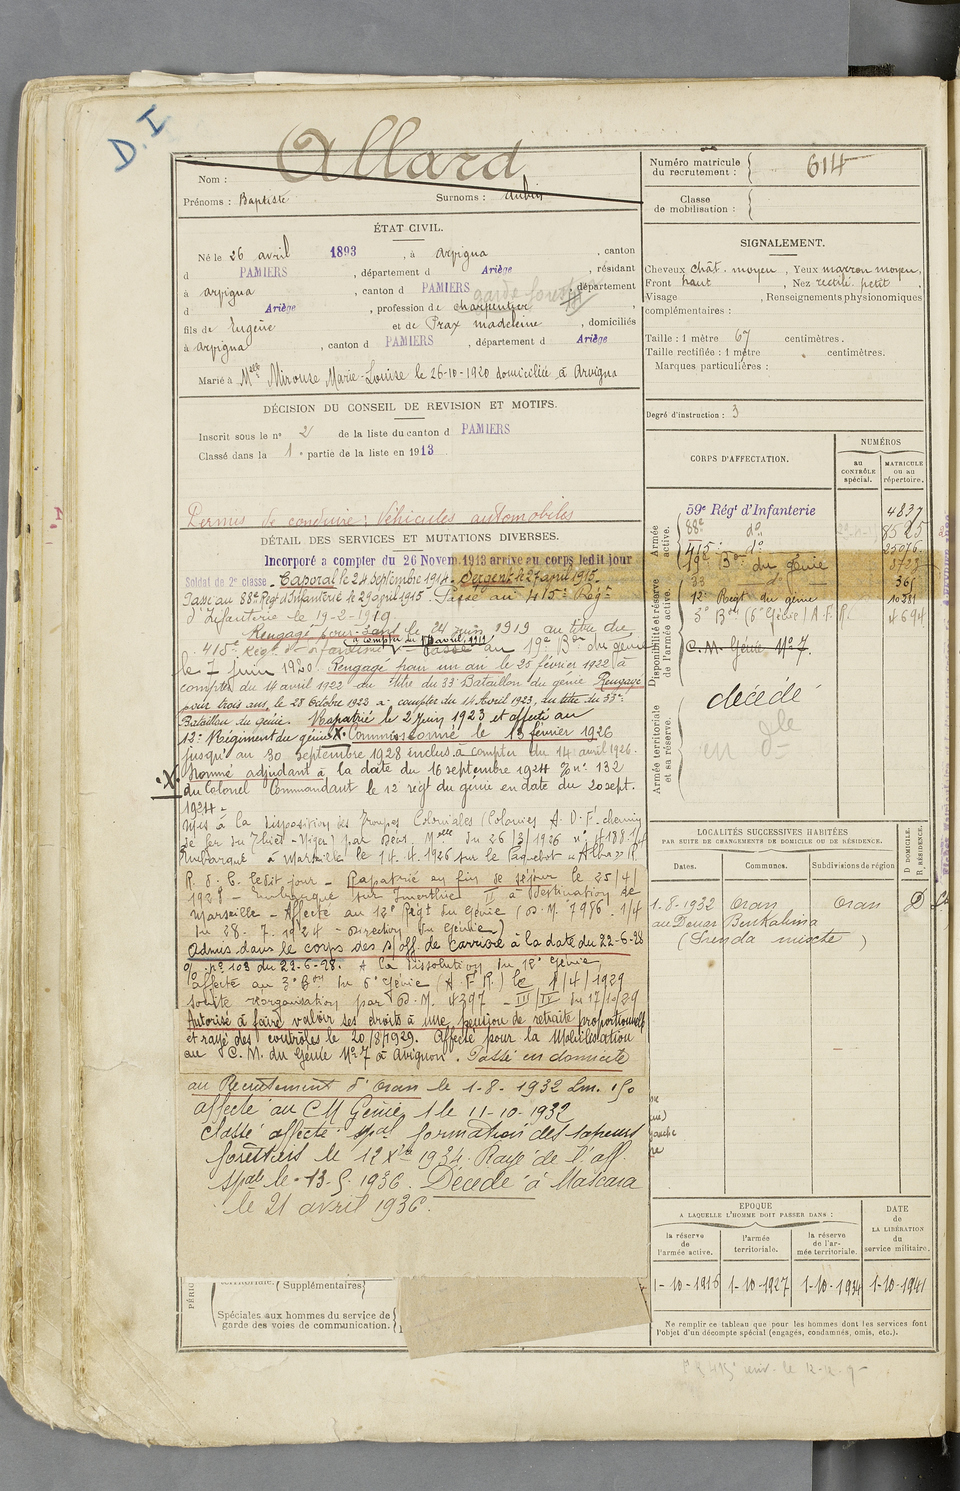 D.I
Allard
Nom :
Prénoms : Baptiste Surnoms : Aubin
ÉTAT CIVIL.
Né le 26 avril 1893, à Arvigna, canton
d PAMIERS, département d Ariège, résidant
à Arvigna, canton d PAMIERS, département
garde forestier
d Ariège, profession de charpentier
fils de Eugène et de Prax Madeleine, domiciliés
à Arvigna, canton d PAMIERS, département d Ariège
Marié à Melle Mirouse Marie-Louise le 26-10-1920 domiciliée à Arvigna
DÉCISION DU CONSEIL DE REVISION ET MOTIFS.
Inscrit sous le n° 2 de la liste du canton d PAMIERS
Classé dans la 1e partie de la liste en 1913
Permis de conduire : Véhicules automobiles
DÉTAIL DES SERVICES ET MUTATIONS DIVERSES.
Incorporé a compter du 26 Novem. 1913 arrive au corps ledit jour
Soldat de 2e classe. Caporal le 24 Septembre 1914. Sergent le 27 avril 1915.
Passé au 88e Régt d'Infanterie le 29 avril 1915. Passé au 415e Régt
d'Infanterie le 19-2-1919.
Rengagé pour 3 ans le 24 juin 1919 au titre du
à compter du 19 avril 1919
415e Régt d'Infanterie. Passé au 19e Bon du génie
le 7 juin 1920. Rengagé pour un an le 25 février 1922 à
compter du 14 avril 1922 au titre du 33e Bataillon du génie Rengagé
pour trois ans, le 28 Octobre 1922 à compter du 14 Avril 1923, au titre du 33e
Bataillon du génie. Rapatrié le 2 Juin 1923 et affecté au
12e Régiment du génie X. Commissionné le 13 février 1926
jusqu'au 30 septembre 1928 inclus à compter du 14 avril 1926.
X. Nommé adjudant à la date du 16 septembre 1924 n° 132
du Colonel Commandant le 12e régt du génie en date du 20 sept.
1924 -
Mis à la disposition des Troupes Coloniales (Colonies A.O.F. chemin
de fer du Thiès-Niger) par Décis. Melle du 26/3/1926 n° 4188.1/4
Embarqué à Marseille le 14.4.1926 sur le Paquebot "Alba"
R.d.C. ledit jour - Rapatrié en fin de séjour le 25/4/
1928 - embarqué sur à destination de
Marseille - Affecté au 12e Régt du Génie (D.M. 7986. 1/4
du 28.7.1924 - Direction du Génie)
Admis dans le corps des s/off. de carrière à la date du 22-6-28
n° 103 du 22-6-28. A la dissolution du 12e Génie,
affecté au 3e Bon du 6e Génie (A.F.R.) le 1/4/1929
Suite réorganisation par D.M. 4397 - III/IV du 17/10/29
Autorisé à faire valoir ses droits à une pension de retraite proportionnelle
et rayé des contrôles le 20/8/1929. Affecté pour la Mobilisation
au C.M. du Génie No 7 à Avignon. Passé en domicile
au Recrutement d'Oran le 1-8-1932
affecté au CM Génie 1 le 11-10-1932
Classé affecté spal formation des sapeurs
forestiers le 12 Xbre 1934. Rayé de l'aff.
spale le 13.5.1936. Décédé à Mascara
le 21 avril 1936.
PÉRIO
territoriale. (Supplémentaires
Spéciales aux hommes du service de
garde des voies de communication.
Numéro matricule
du recrutement : 614
Classe
de mobilisation :
SIGNALEMENT.
Cheveux chât. moyen, Yeux marron moyen,
Front haut, Nez rectil. petit,
Visage , Renseignements physionomiques
complémentaires :
Taille : 1 mètre 67 centimètres.
Taille rectifiée : 1 mètre centimètres.
Marques particulières :
Degré d'instruction : 3
CORPS D'AFFECTATION.
NUMÉROS
au
CONTRÔLE
spécial.
MATRICULE
ou au
répertoire.
Armée
active.
Disponibilité et réserve
de l'armée active.
Armée territoriale
et sa réserve.
59e Régt d'Infanterie 4837
88e do 8525
415e do 25076
19e Bon du génie
33 do 361
12e Regt du génie
3e Bon (6e Génie) A.F.R. 4694
C.M. Génie No 7.
décédé
LOCALITÉS SUCCESSIVES HABITÉES
PAR SUITE DE CHANGEMENTS DE DOMICILE OU DE RÉSIDENCE.
Dates. Communes. Subdivisions de région
D DOMICILE.
R RÉSIDENCE.
1.8-1932 Oran Oran D
au Douar Benkalima
(Frenda mixte)
EPOQUE
A LAQUELLE L'HOMME DOIT PASSER DANS :
la réserve
de
l'armée active.
l'armée
territoriale.
la réserve
de l'ar-
mée territoriale.
DATE
de
LA LIBÉRATION
du
service militaire.
1-10-1916 1-10-1927 1-10-1934 1-10-1941
Ne remplir ce tableau que pour les hommes dont les services font
l'objet d'un décompte spécial (engagés, condamnés, omis, etc.).